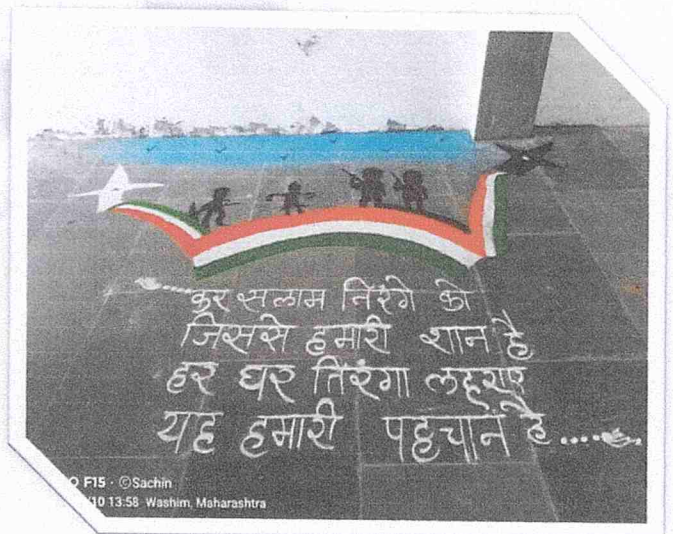 कर सलाम तिरंगे को
जिससे हमारी शान है
हर घर तिरंगा लहराए
यह हमारी पहचान है.....
O F15 · ©Sachin
/10 13:58 Washim, Maharashtra